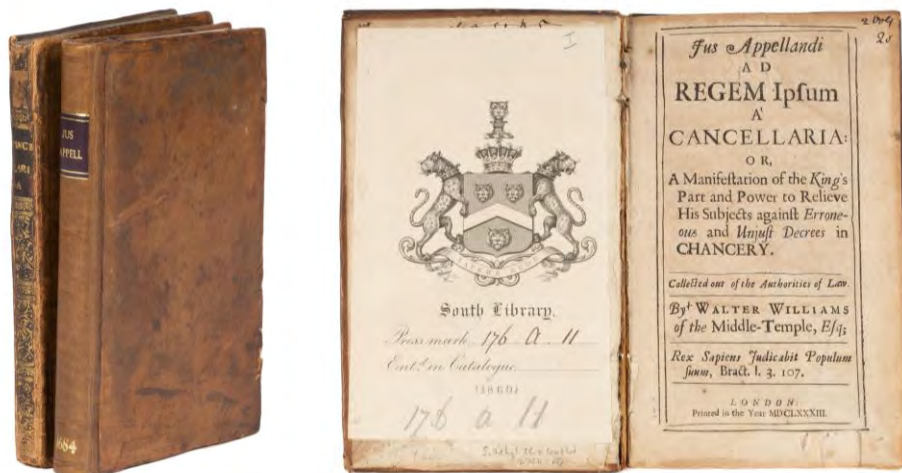 JUS
APPELL
1684
I
South Library.
Press mark 176 A 11
Ent.d in Catalogue
(1860)
176 a 11
2009
20
Jus Appellandi
AD
REGEM Ipſum
A'
CANCELLARIA:
OR,
A Manifeſtation of the King's
Part and Power to Relieve
His Subjects againſt Errone-
ous and Unjuſt Decrees in
CHANCERY.
Collected out of the Authorities of Law.
By WALTER WILLIAMS
of the Middle-Temple, Eſq;
Rex Sapiens Judicabit Populum
ſuum, Bract. l. 3. 107.
LONDON:
Printed in the Year MDCLXXXIII.